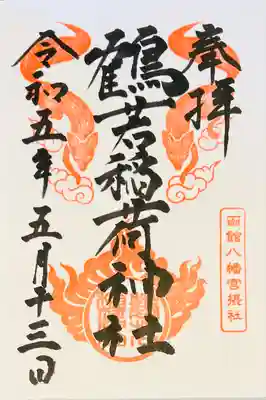 奉拝
鶴若稲荷神社
函館八幡宮摂社
令和五年五月十三日